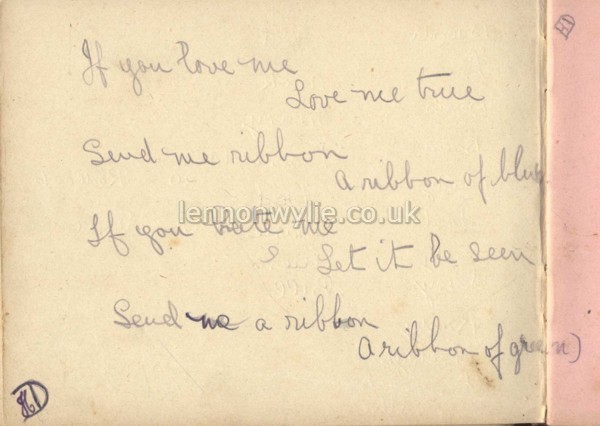 If you love me
Love me true
Send me ribbon
A ribbon of blue
lennonwylie.co.uk
If you hate me
Let it be seen
Send me a ribbon
A ribbon of green)